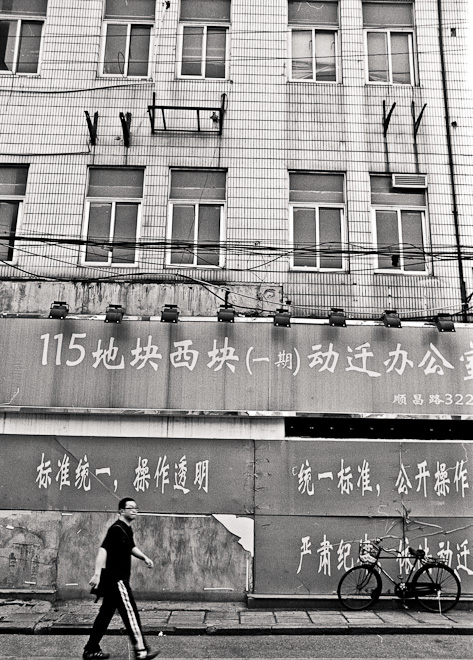 115地块西块(一期)动迁办公室
顺昌路322
标准统一，操作透明
统一标准，公开操作
严肃纪 动迁